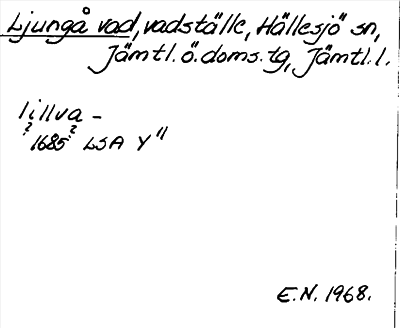 Ljungå vad, vadställe, Hällesjö sn,
Jämtl. ö. doms. tg, Jämtl. l.
lillva -
? ?
1685 LSA Y"
E.N. 1968.